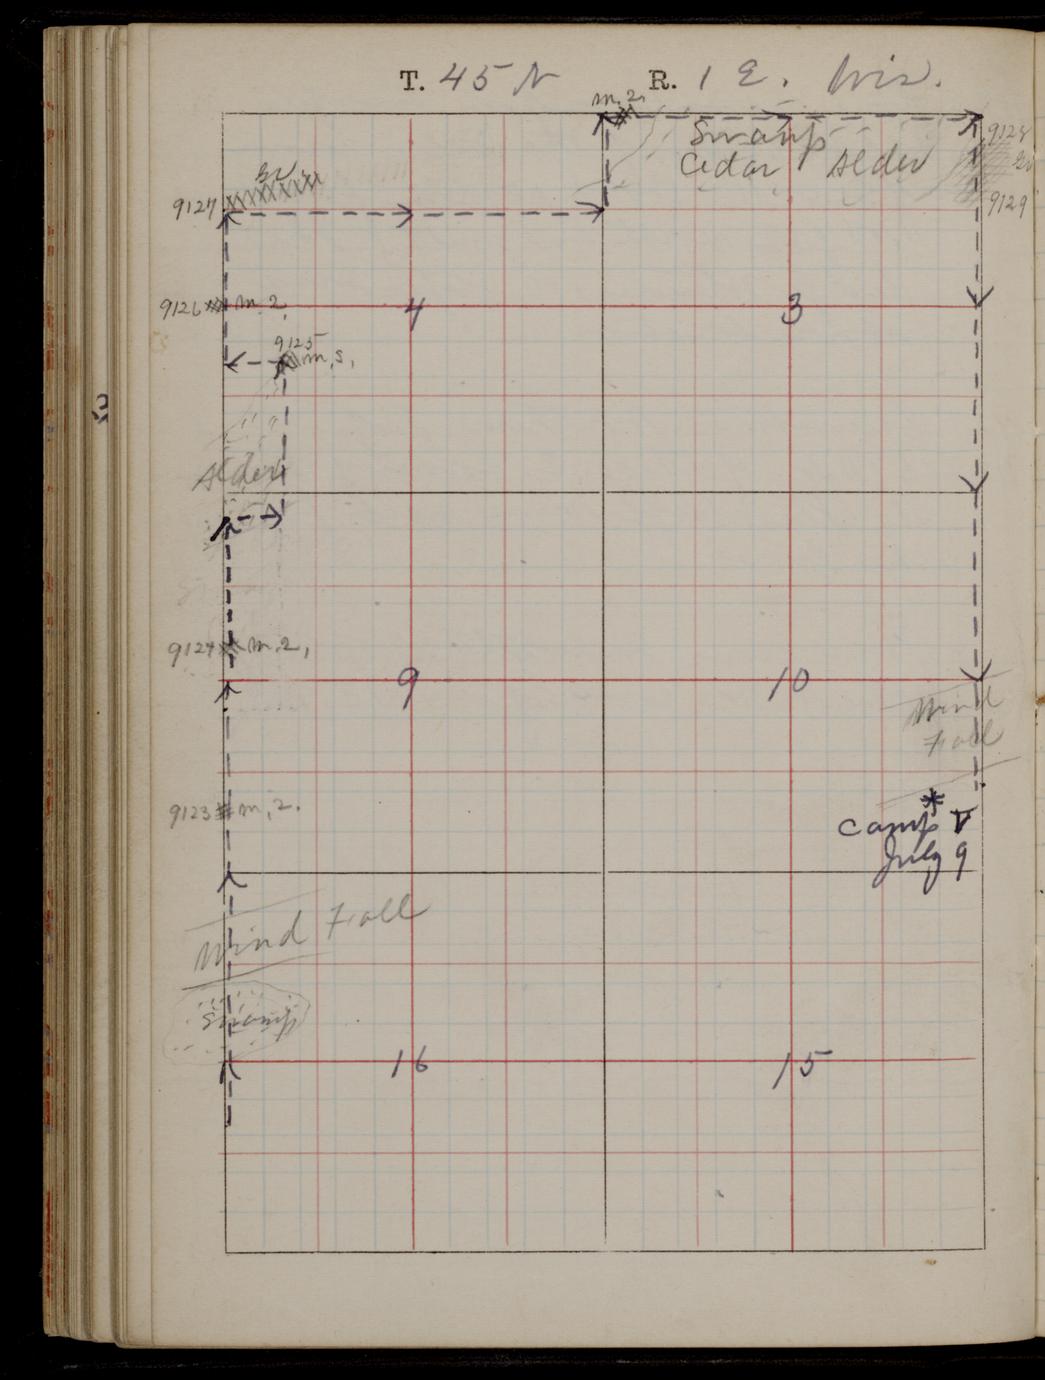 T. 45 N R. 1 E. Wis.
m, 2,
Swamp
Cedar Alder
9128
9129
9127
9126 m, 2,
4 3
9125
m, s,
Alder
9124 m, 2,
9 10
Wind
Fall
9123 m, 2.
Camp V
July 9
Wind Fall
Swamp
16 15